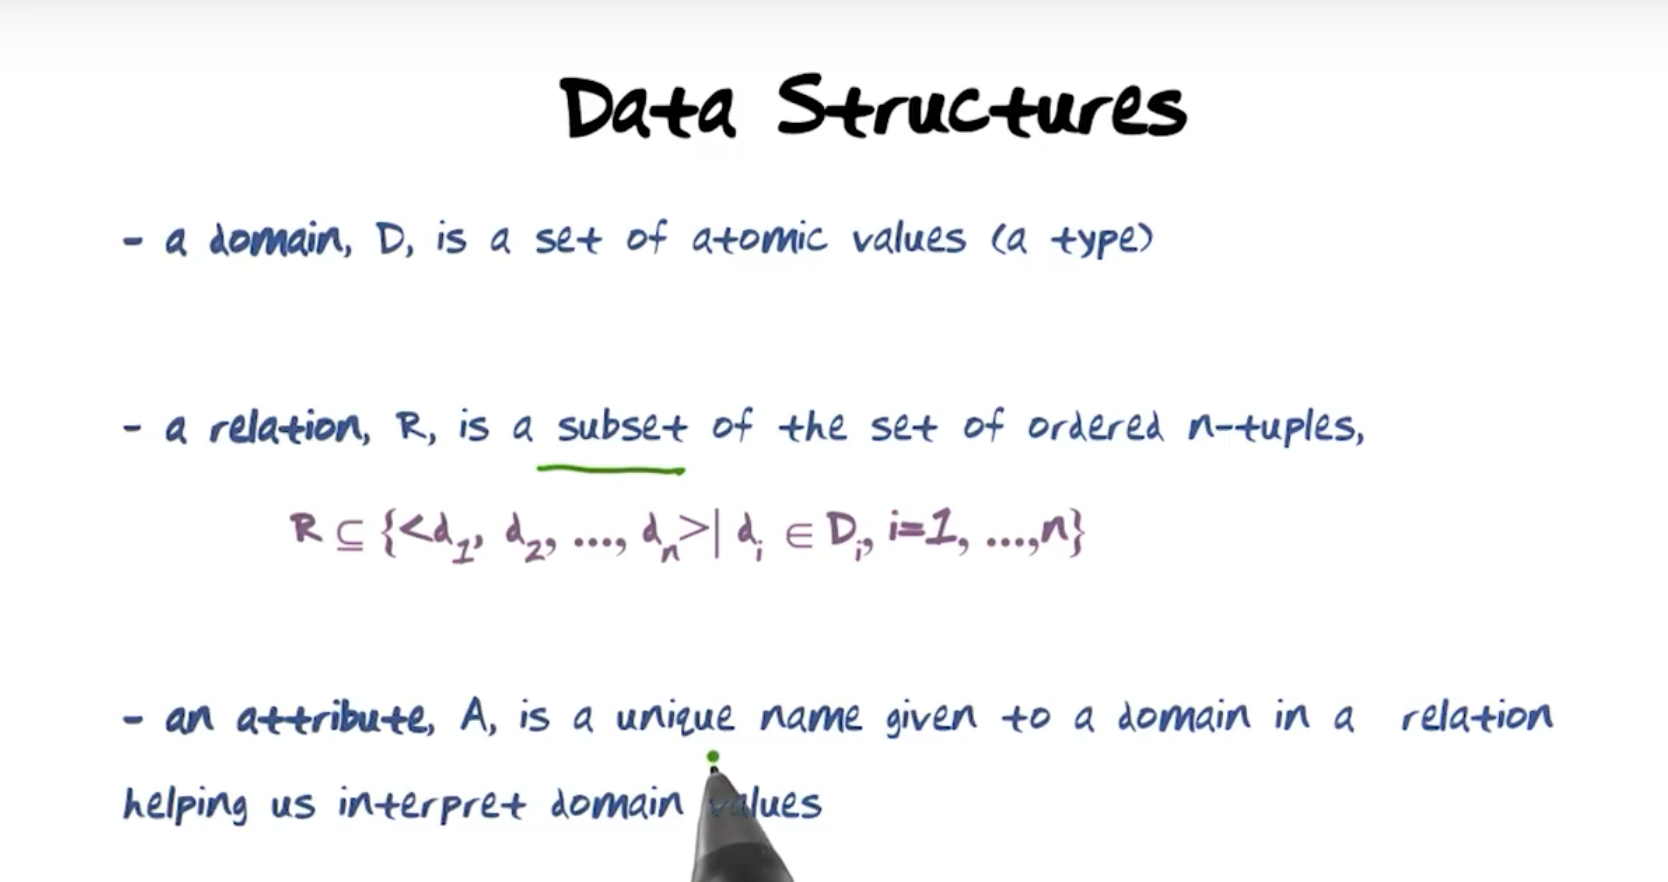 Data Structures
- a domain, D, is a set of atomic values (a type)
- a relation, R, is a subset of the set of ordered n-tuples,
R ⊆ {<d₁, d₂, ..., dₙ>| dᵢ ∈ Dᵢ, i=1, ...,n}
- an attribute, A, is a unique name given to a domain in a relation
helping us interpret domain values